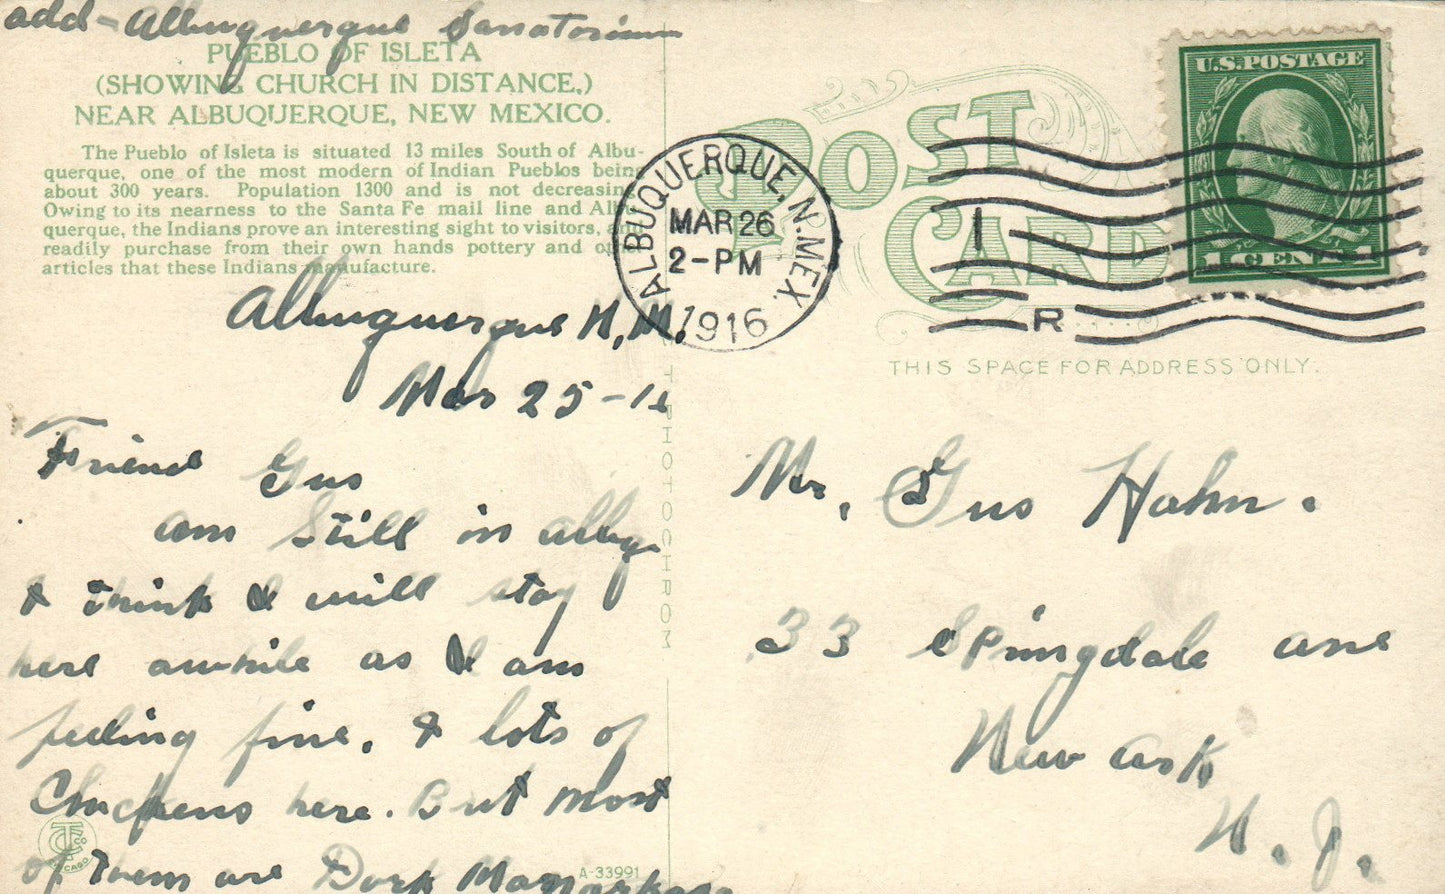 add - Albuquerque Sanatorium
PUEBLO OF ISLETA
(SHOWING CHURCH IN DISTANCE,)
NEAR ALBUQUERQUE, NEW MEXICO.
The Pueblo of Isleta is situated 13 miles South of Albu-
querque, one of the most modern of Indian Pueblos being
about 300 years. Population 1300 and is not decreasing
Owing to its nearness to the Santa Fe mail line and Albu
querque, the Indians prove an interesting sight to visitors, and
readily purchase from their own hands pottery and o
articles that these Indians manufacture.
Albuquerque N.M.
Mar 25-16
Friend Gus
am still in albuq
& think I will stay
here awhile as I am
feeling fine. & lots of
Chickens here. But most
of them are Dark
TC Co
CHICAGO
A-33991
PHOTOCHROM
POST
CARD
ALBUQUERQUE, N. MEX.
MAR 26
2-PM
1916
1
R
U.S. POSTAGE
1 CENT 1
THIS SPACE FOR ADDRESS ONLY.
Mr. Gus Hahn.
33 Springdale ave
Newark
N. J.